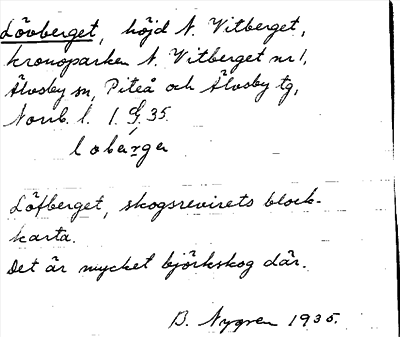 Lövberget, höjd N. Vitberget,
kronoparken N. Vitberget nr 1,
Älvsby sn, Piteå och Älvsby tg,
Norrb. l. 1. G 35.
lobärge
Löfberget, skogsrevirets block-
karta.
Det är mycket björkskog där.
B. Nygren 1935.